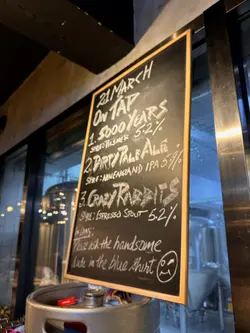 21 MARCH
ON TAP
1. 5000 YEARS
STYLE: PILSNER 5.2%
2. DIRTY PALE ALE
STYLE: NEW ENGLAND IPA 5%
3. CRAZY RABBITS
STYLE: ESPRESSO STOUT 5.2%
Please ask the handsome
dude in the blue shirt